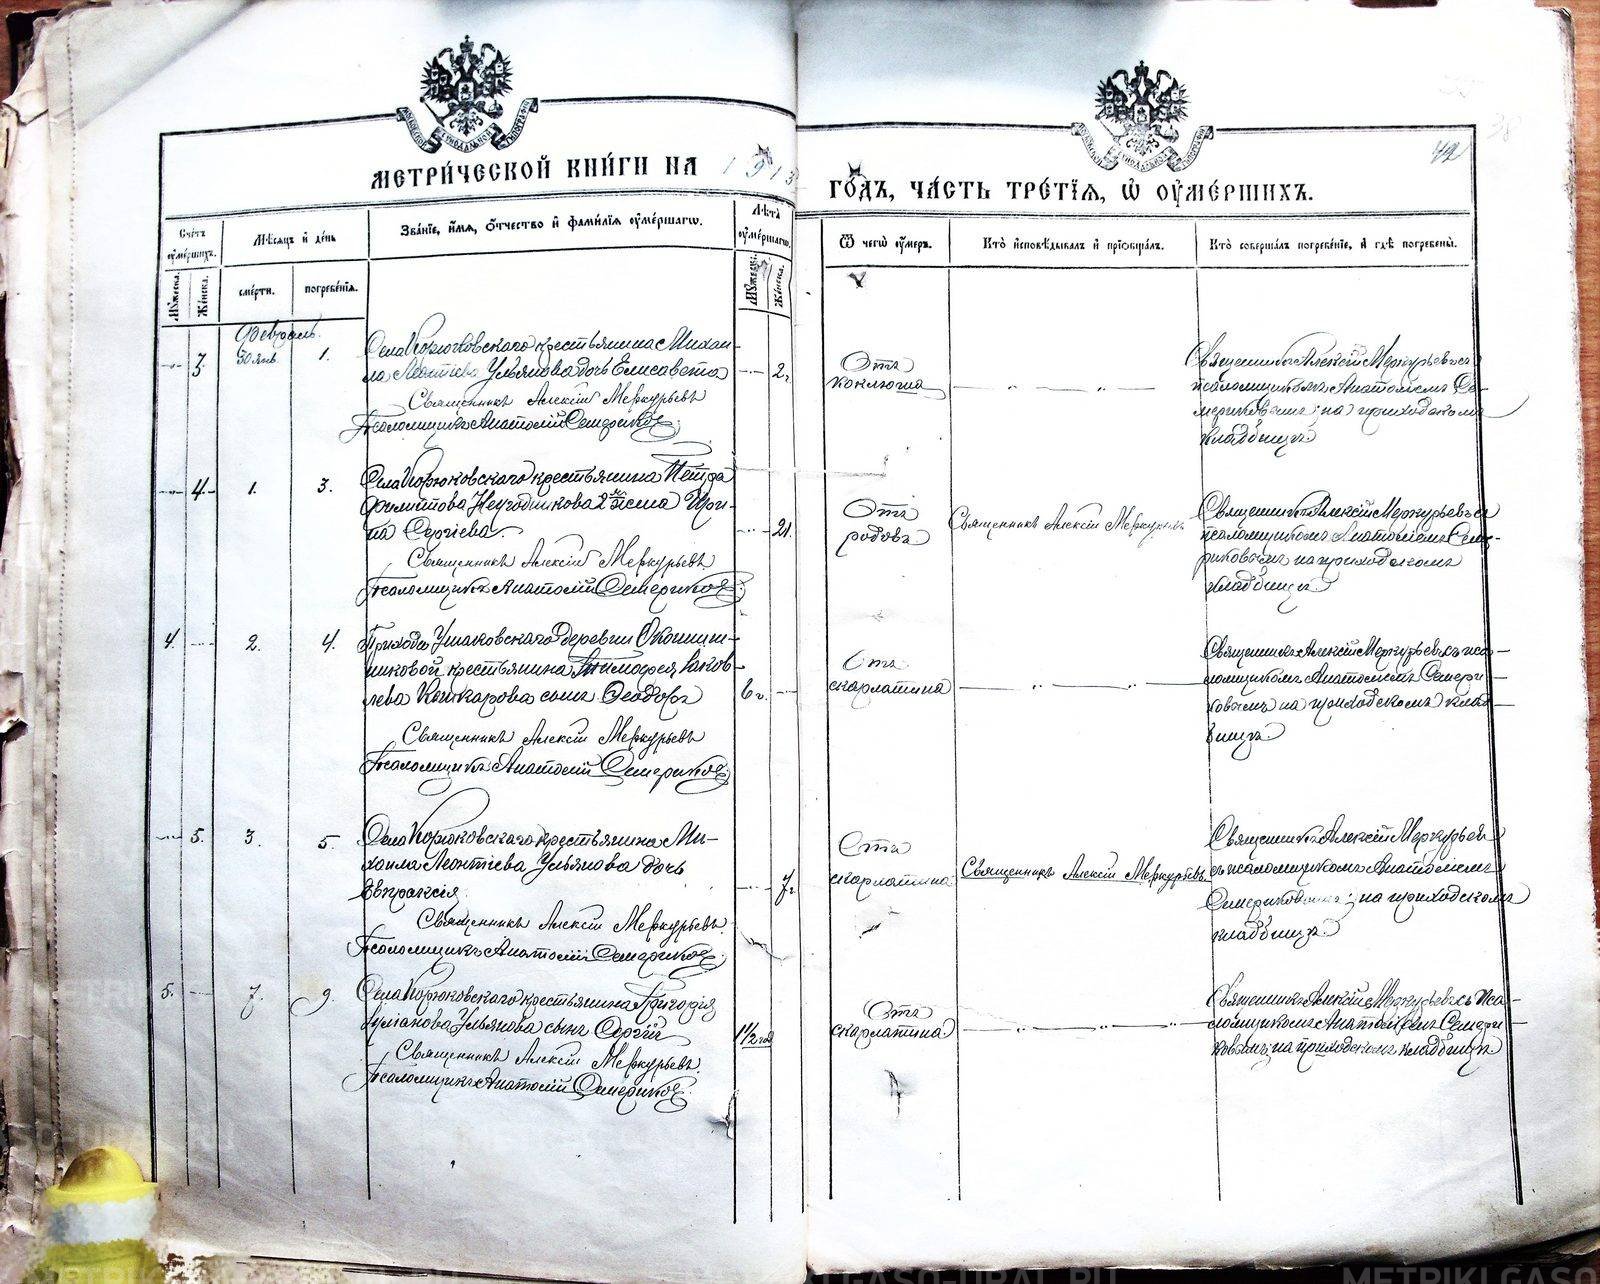 МЕТРИ́ЧЕСКОЙ КНИ́ГИ НА 1913
ГО́ДЪ, ЧА́СТЬ ТРЕ́ТІЯ, Ѡ ОУМЕ́РШИХЪ.
42
38
Сче́тъ оуме́ршихъ.
Мѣсяцъ и де́нь
Зва́ніе, и́мя, о́тчество и фами́лія оуме́ршагѡ.
Лѣта оуме́ршагѡ.
Ѿ чегѡ̀ оу́меръ.
Кто̀ исповѣ́дывалъ и пріобща́лъ.
Кто̀ соверша́лъ погребе́ніе, и гдѣ̀ погребены̀.
Му́жеска.
Же́нска.
сме́рти.
погребе́нія.
Му́жескі.
Же́нска.
Февраль.
3. 30 янв 1.
Села Корюковскаго крестьянина Михаи-
ла Леонтіева Ульянова дочь Елисавета
2 г.
Священникъ Алексій Меркурьевъ
Псаломщикъ Анатолій Семериковъ
Отъ
коклюша
Священникъ Алексій Меркурьевъ съ
псаломщикомъ Анатоліемъ Се-
мериковымъ; на приходскомъ
кладбищѣ
4. 1. 3.
Села Корюковскаго крестьянина Петра
Филиппова Неугодникова 2ая жена Ири-
на Сергіева.
21.
Священникъ Алексій Меркурьевъ
Псаломщикъ Анатолій Семериковъ
Отъ
родовъ
Священникъ Алексій Меркурьевъ
Священникъ Алексій Меркурьевъ съ
псаломщикомъ Анатоліемъ Семе-
риковымъ на приходскомъ
кладбищѣ
4. 2. 4.
Прихода Ушаковскаго деревни
крестьянина Тимофея Яков-
лева сынъ Ѳеодоръ
6 г.
Священникъ Алексій Меркурьевъ
Псаломщикъ Анатолій Семериковъ
Отъ
скарлатина
Священникъ Алексій Меркурьевъ съ пса-
ломщикомъ Анатоліемъ Семери-
ковымъ на приходскомъ клад-
бищѣ
5. 3. 5.
Села Корюковскаго крестьянина Ми-
хаила Леонтіева Ульянова дочь
Евпраксія
7 г
Священникъ Алексій Меркурьевъ.
Псаломщикъ Анатолій Семериковъ
Отъ
скарлатина
Священникъ Алексій Меркурьевъ
Священникъ Алексій Меркурьевъ
съ псаломщикомъ Анатоліемъ
Семериковымъ; на приходскомъ
кладбищѣ
5. 7. 9.
Села Корюковскаго крестьянина Григорія
Іуліанова Ульянова сынъ Сергій
1½ год
Священникъ Алексій Меркурьевъ.
Псаломщикъ Анатолій Семериковъ
Отъ
скарлатина
Священникъ Алексій Меркурьевъ съ пса-
ломщикомъ Анатоліемъ Семери-
ковымъ; на приходскомъ кладбищѣ